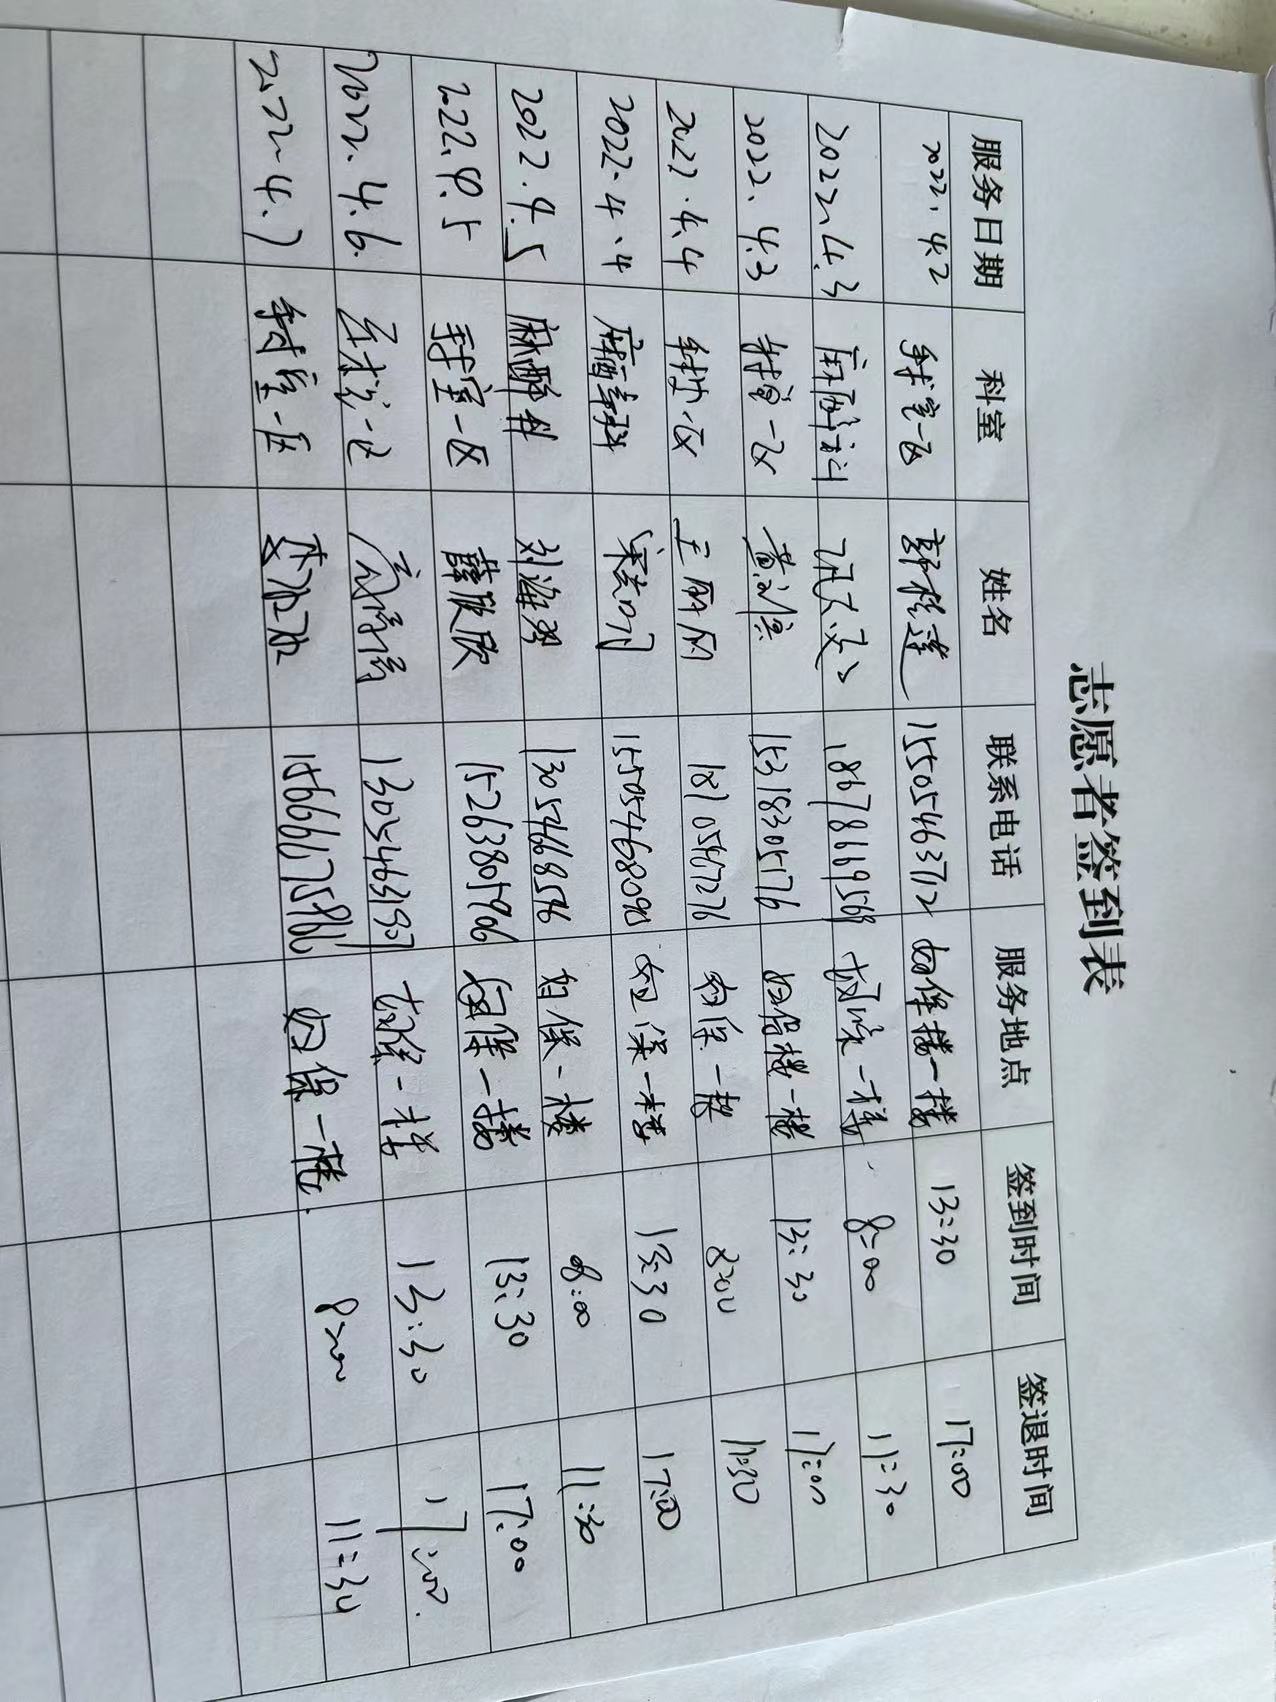 志愿者签到表
服务日期 科室 姓名 联系电话 服务地点 签到时间 签退时间
2022.4.2 手术室一区 郭桂莲 15505463712 妇保楼一楼 13:30 17:00
2022.4.3 麻醉科 18678669568 一楼 8:00 11:30
2022.4.3 手术室一区 黄 15318305176 妇保楼一楼 13:30 17:00
2022.4.4 手术室一区 王丽丽 18705467276 妇保一楼 8:00 11:30
2022.4.4 麻醉科 15505468090 妇保一楼 13:30 17:00
2022.4.5 麻醉科 刘海勇 13054668576 妇保一楼 8:00 11:30
2022.4.5 手术室一区 薛欣欣 15263805906 妇保一楼 13:30 17:00
2022.4.6 手术室一区 高 13054631907 妇保一楼 13:30 17:00
2022.4.7 手术室一区 妇保一楼. 8:00 11:30